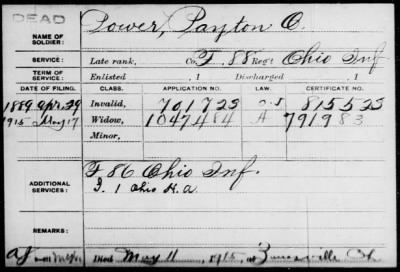 DEAD
NAME OF SOLDIER: Lower, Payton O.
SERVICE: Late rank, Co. F, 88 Reg't Ohio Inf
TERM OF SERVICE: Enlisted , 1 Discharged , 1
DATE OF FILING. CLASS. APPLICATION NO. LAW. CERTIFICATE NO.
1889 Apr. 29 Invalid, 701723 815523
1915 May 17 Widow, 1047484 A 791983
Minor,
ADDITIONAL SERVICES: F 86 Ohio Inf.
I. 1 Ohio H. A
REMARKS:
Died May 11, 1915, at Zanesville Oh